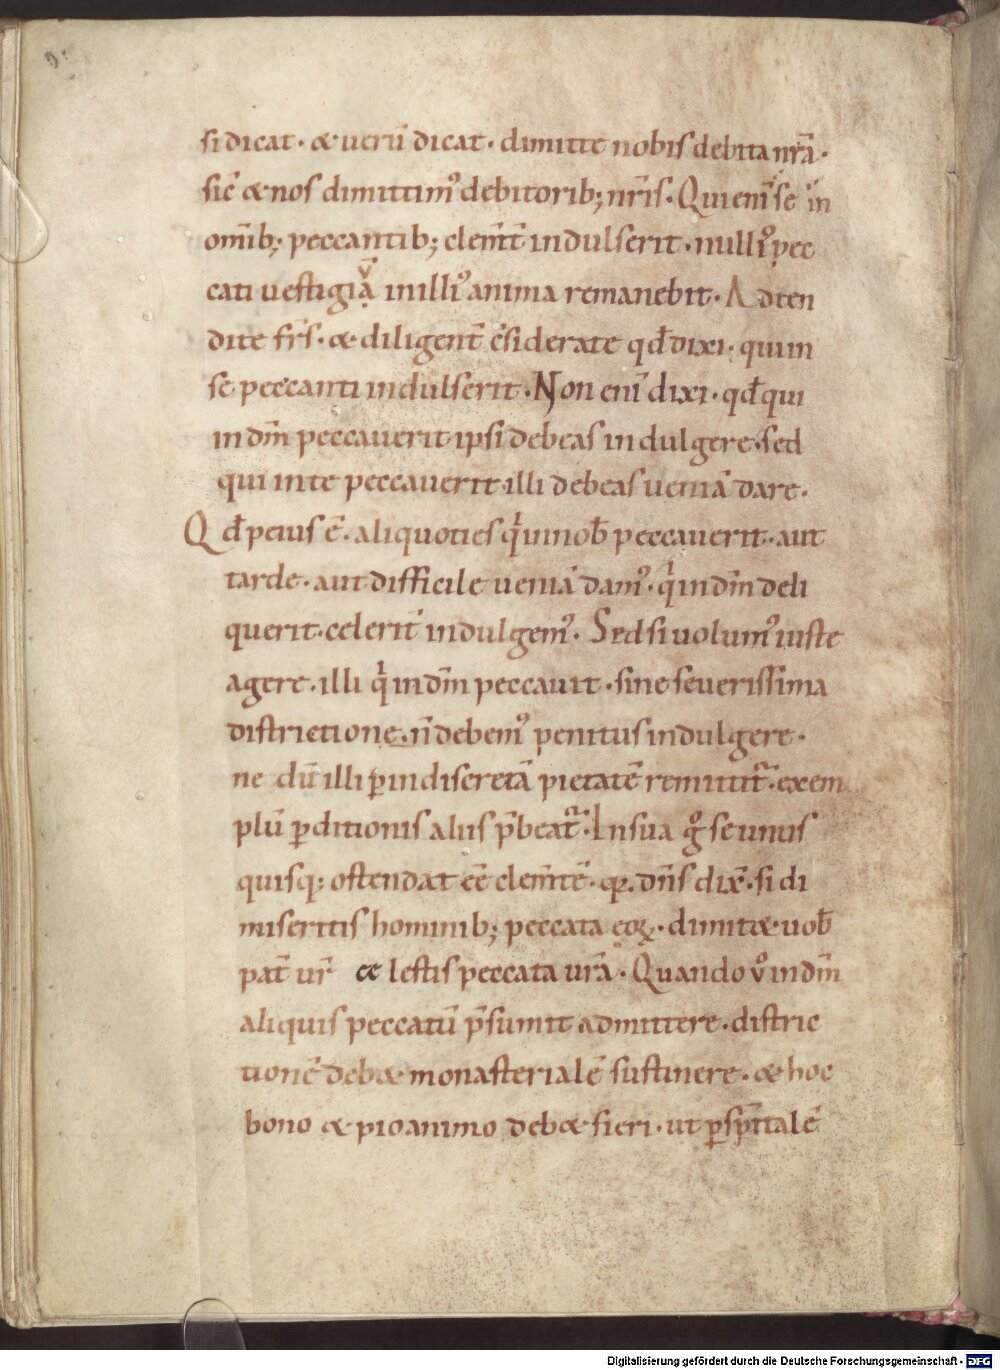 si dicat · & uerū dicat · dimitte nobis debita nr̄a ·
sic̄ & nos dimittim᾽ debitorib; nr̄is · Qui eni᷑ se in
om̄ib; peccantib; clem̄t̄ indulserit · null᾽ pec
cati uestigiā v in illi᾽ anima remanebit · Adten
dite fr̄s · & diligent̄ c̄siderate qđ dixi · qui in
se peccanti indulserit · Non eni᷑ dixi · qđ qui
in dm̄ peccauerit ipsi debeas indulgere · sed
qui in te peccauerit illi debeas ueniā dare ·
Qđ peius ē · aliquoties qͥ in nob̄ peccauerit · aut
tarde · aut difficile ueniā dam᾽ · qͥ in dm̄ deli
querit · celerit̄ indulgem᾽ · Sed si uolum᾽ iuste
agere · illi qͥ in dm̄ peccauit · sine seuerissima
districtione · n̄ debem᾽ penitus indulgere ·
ne dū illi ꝑ indiscretā pietatē remittit᷑ · exem
plū ꝑditionis aliis p̄beat᷑ · In sua gͦ se unus
quisq; ostendat ēe clem̄tē · qꝛ dn̄s dix̄ · si di
miseritis hominib; peccata eoꝝ · dimit& uob̄
pat̄ ur̄ celestis peccata ur̄a · Quando vͦ in dm̄
aliquis peccatū p̄sumit admittere · distric
tionē deb& monasterialē sustinere · & hoc
bono & pio animo deb& fieri · ut ꝑ sp̄italē
Digitalisierung gefördert durch die Deutsche Forschungsgemeinschaft - DFG